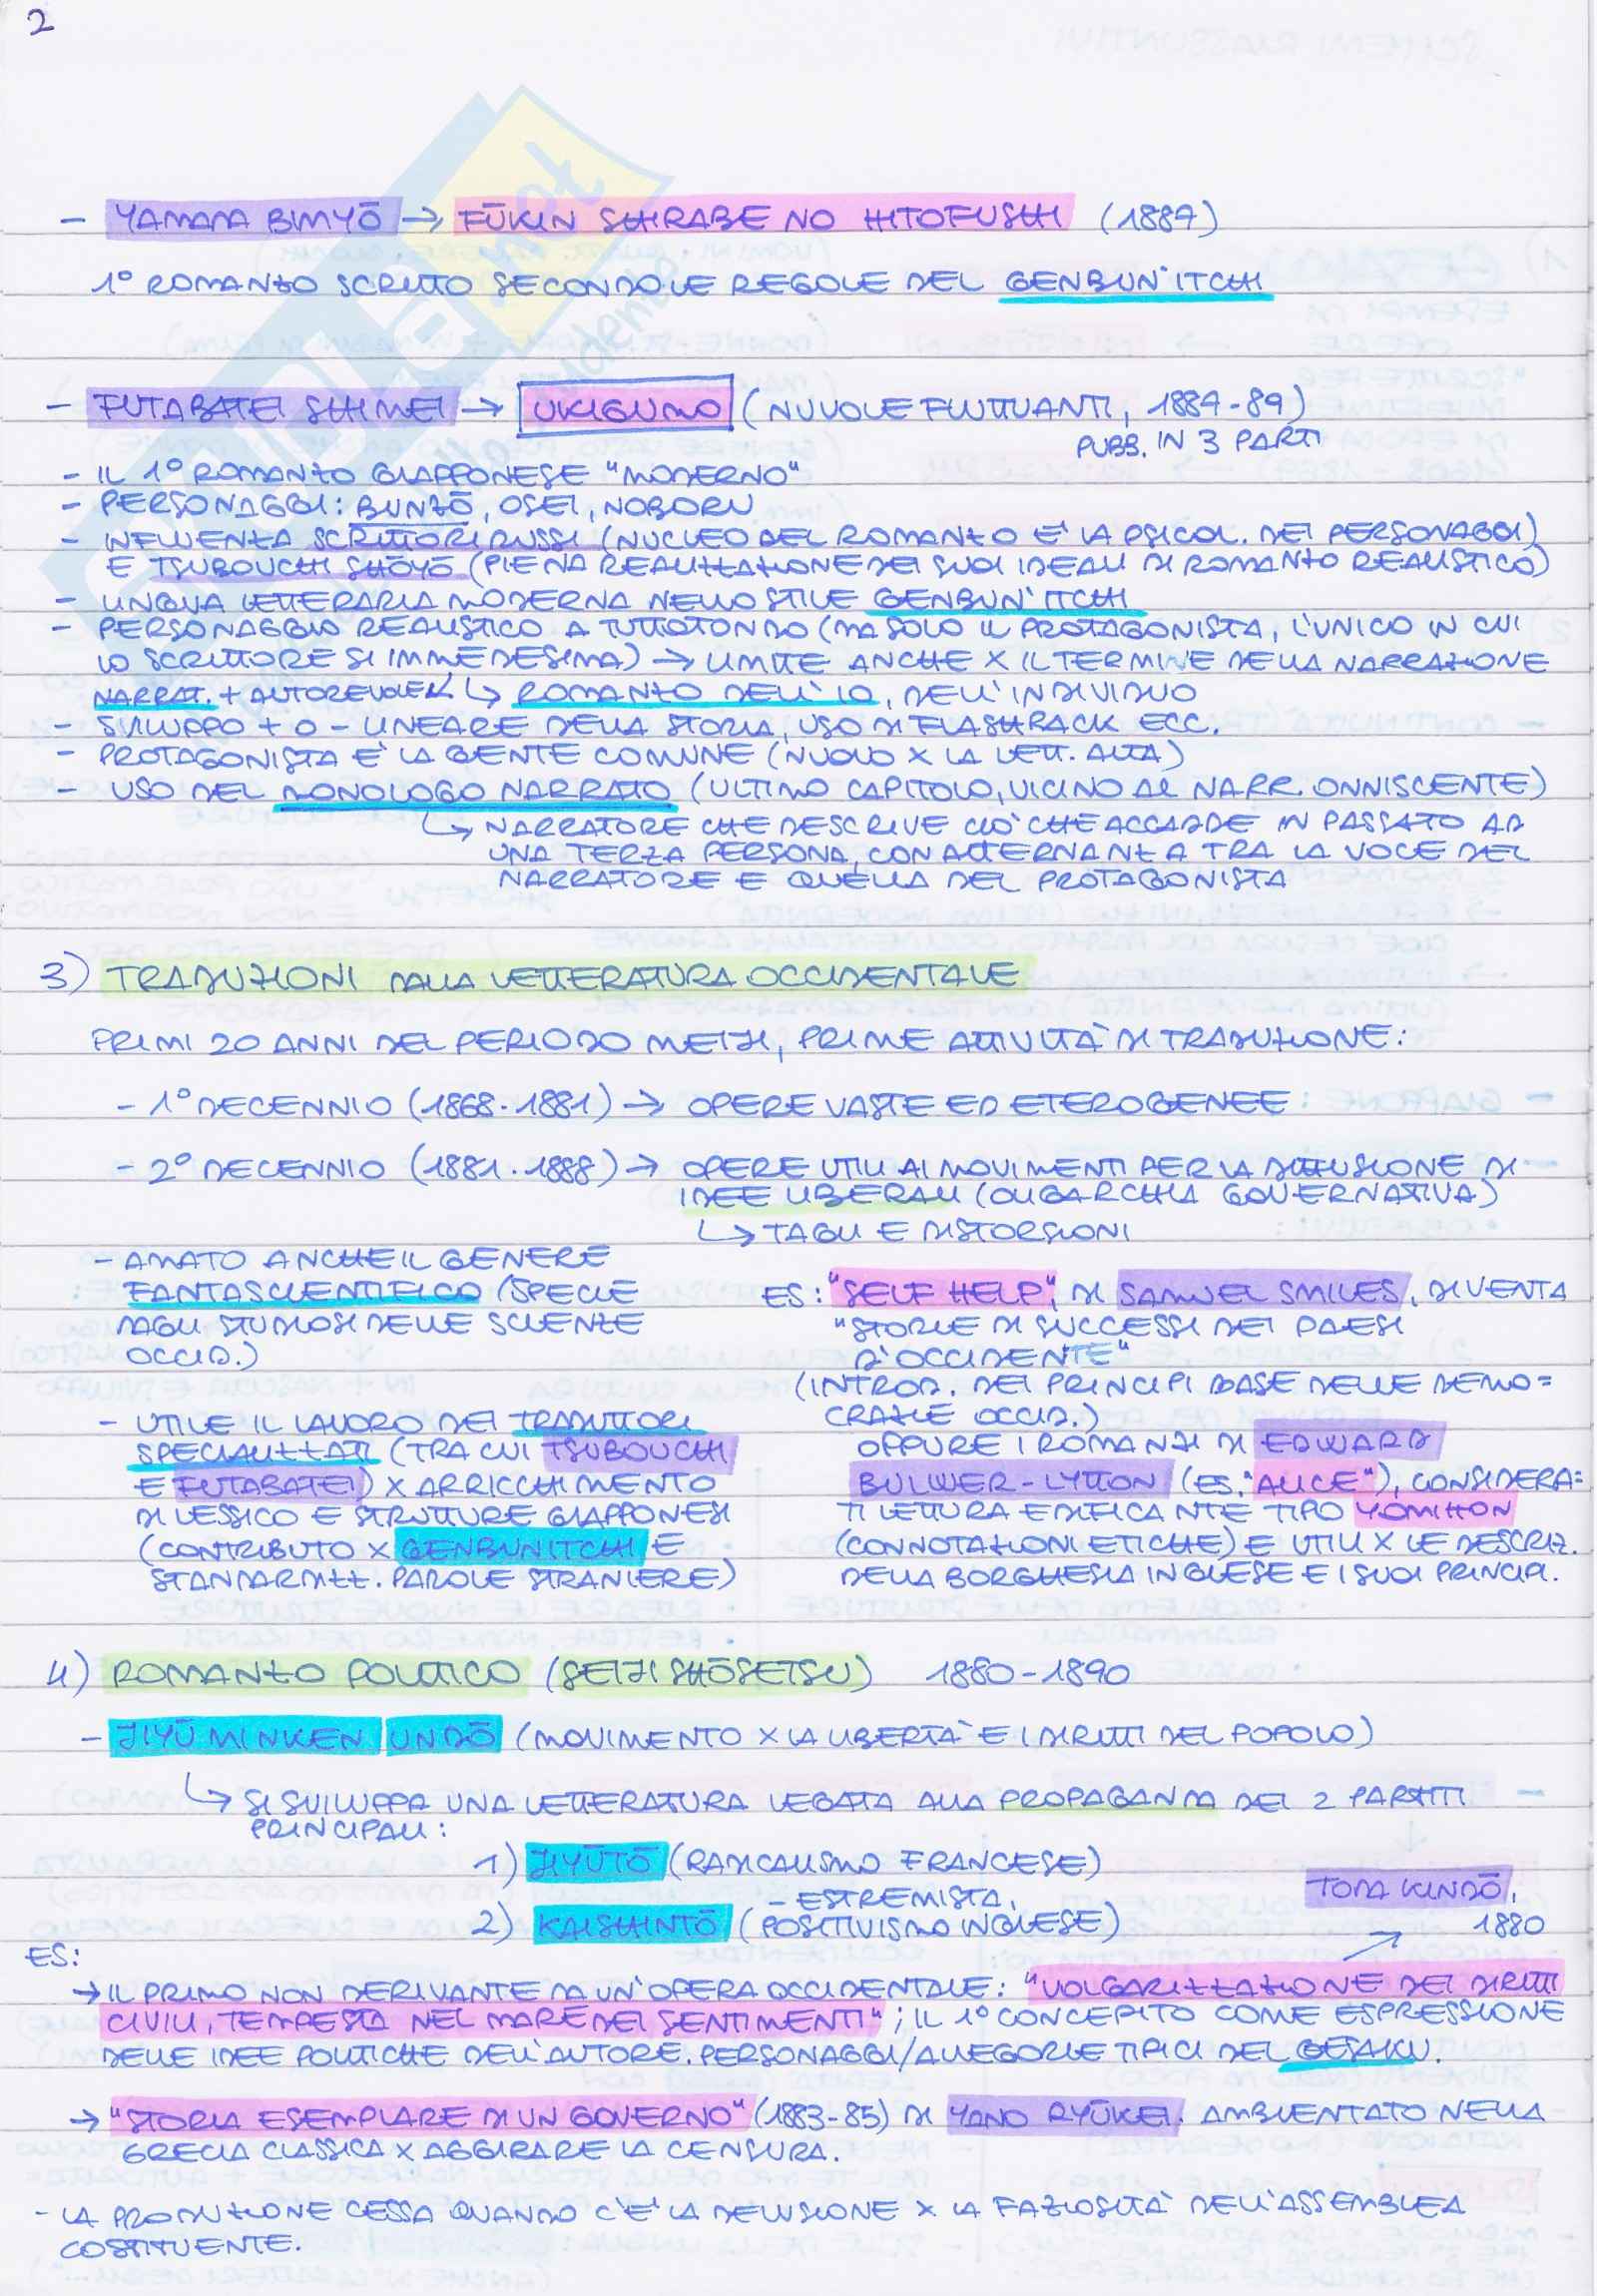 2
- YAMADA BIMYŌ → FŪKIN SHIRABE NO HITOFUSHI (1887)
1° ROMANZO SCRITTO SECONDO LE REGOLE DEL GENBUN'ITCHI
- FUTABATEI SHIMEI → UKIGUMO (NUVOLE FLUTTUANTI, 1887-89)
PUBB. IN 3 PARTI
- IL 1° ROMANZO GIAPPONESE "MODERNO"
- PERSONAGGI: BUNZŌ, OSEI, NOBORU
- INFLUENZA SCRITTORI RUSSI (NUCLEO DEL ROMANZO E' LA PSICOL. DEI PERSONAGGI)
E TSUBOUCHI SHŌYŌ (PIENA REALIZZAZIONE DEI SUOI IDEALI DI ROMANZO REALISTICO)
- LINGUA LETTERARIA MODERNA NELLO STILE GENBUN'ITCHI
- PERSONAGGIO REALISTICO A TUTTOTONDO (MA SOLO IL PROTAGONISTA, L'UNICO IN CUI
LO SCRITTORE SI IMMEDESIMA) → LIMITE ANCHE X IL TERMINE DELLA NARRAZIONE
NARRAT. + AUTOREVOLE ↳ ROMANZO DELL'IO, DELL'INDIVIDUO
- SVILUPPO + O - LINEARE DELLA STORIA, USO DI FLASHBACK ECC.
- PROTAGONISTA E' LA GENTE COMUNE (NUOVO X LA LETT. ALTA)
- USO DEL MONOLOGO NARRATO (ULTIMO CAPITOLO, VICINO AL NARR. ONNISCENTE)
↳ NARRATORE CHE DESCRIVE CIO' CHE ACCADDE IN PASSATO AD
UNA TERZA PERSONA, CON ALTERNANZA TRA LA VOCE DEL
NARRATORE E QUELLA DEL PROTAGONISTA
3) TRADUZIONI DALLA LETTERATURA OCCIDENTALE
PRIMI 20 ANNI DEL PERIODO MEIJI, PRIME ATTIVITÀ DI TRADUZIONE:
- 1° DECENNIO (1868-1881) → OPERE VASTE ED ETEROGENEE
- 2° DECENNIO (1881-1888) → OPERE UTILI AI MOVIMENTI PER LA DIFFUSIONE DI
IDEE LIBERALI (OLIGARCHIA GOVERNATIVA)
↳ TAGLI E DISTORSIONI
- AMATO ANCHE IL GENERE
FANTASCIENTIFICO (SPECIE
DAGLI STUDIOSI DELLE SCIENZE
OCCID.)
- UTILE IL LAVORO DEI TRADUTTORI
SPECIALIZZATI (TRA CUI TSUBOUCHI
E FUTABATEI) X ARRICCHIMENTO
DI LESSICO E STRUTTURE GIAPPONESI
(CONTRIBUTO X GENBUNITCHI E
STANDARDIZZ. PAROLE STRANIERE)
ES: "SELF HELP", DI SAMUEL SMILES, DIVENTA
"STORIE DI SUCCESSI DEI PAESI
D'OCCIDENTE"
(INTROD. DEI PRINCIPI BASE DELLE DEMO=
CRAZIE OCCID.)
OPPURE I ROMANZI DI EDWARD
BULWER-LYTTON (ES. "ALICE"), CONSIDERA=
TI LETTURA EDIFICANTE TIPO YOMIHON
(CONNOTAZIONI ETICHE) E UTILI X LE DESCRIZ.
DELLA BORGHESIA INGLESE E I SUOI PRINCIPI.
4) ROMANZO POLITICO (SEIJI SHŌSETSU) 1880-1890
- JIYŪ MINKEN UNDŌ (MOVIMENTO X LA LIBERTA' E I DIRITTI DEL POPOLO)
↳ SI SVILUPPA UNA LETTERATURA LEGATA ALLA PROPAGANDA DEI 2 PARTITI
PRINCIPALI:
1) JIYŪTŌ (RADICALISMO FRANCESE)
- ESTREMISTA,
2) KAISHINTŌ (POSITIVISMO INGLESE)
TODA KINDŌ,
1880
ES:
→ IL PRIMO NON DERIVANTE DA UN'OPERA OCCIDENTALE: "VOLGARIZZAZIONE DEI DIRITTI
CIVILI, TEMPESTA NEL MARE DEI SENTIMENTI"; IL 1° CONCEPITO COME ESPRESSIONE
DELLE IDEE POLITICHE DELL'AUTORE. PERSONAGGI/ALLEGORIE TIPICI DEL GESAKU.
→ "STORIA ESEMPLARE DI UN GOVERNO" (1883-85) DI YANO RYŪKEI. AMBIENTATO NELLA
GRECIA CLASSICA X AGGIRARE LA CENSURA.
- LA PRODUZIONE CESSA QUANDO C'E' LA DELUSIONE X LA FAZIOSITA' DELL'ASSEMBLEA
COSTITUENTE.